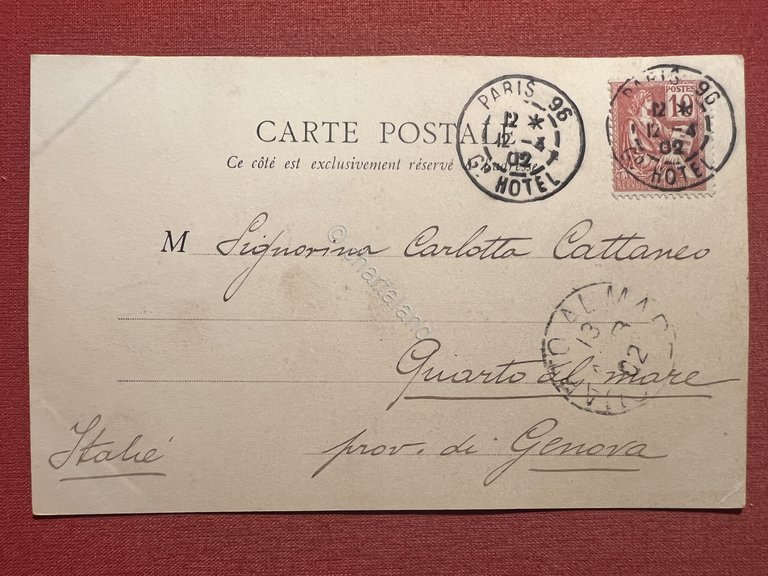 PARIS 96
12 *
12 -4
02
Gd HOTEL
PARIS 96
12 *
12 -4
02
Gd HOTEL
POSTES
10
CARTE POSTALE
Ce côté est exclusivement réservé à l'adresse
M Signorina Carlotta Cattaneo
Quarto al mare
prov. di Genova
Italié
AL MAR
13
02
© chartaland